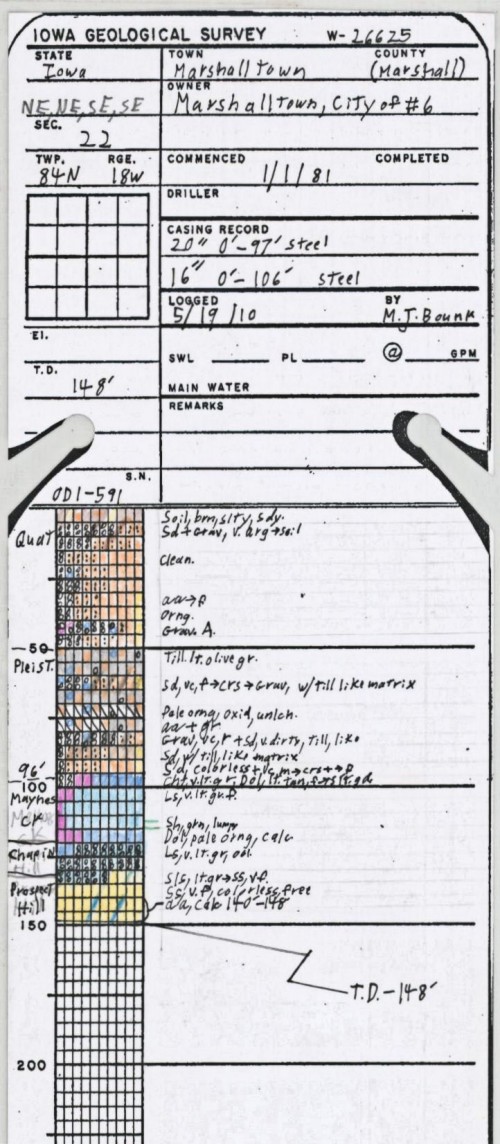 IOWA GEOLOGICAL SURVEY W- 26625
STATE TOWN COUNTY
Iowa Marshalltown (Marshall)
OWNER
NE, NE, SE, SE Marshalltown, City of #6
SEC.
22
TWP. RGE. COMMENCED COMPLETED
84N 18W 1/1/81
DRILLER
CASING RECORD
20" 0'-97' steel
16" 0'-106' steel
LOGGED BY
5/19/10 M.J. Bounk
El.
SWL PL @ GPM
T.D.
148'
MAIN WATER
REMARKS
S.N.
OD1-591
Soil, brn, slty, sdy.
Quat Sd + Grav, v. arg → soil
Clean.
aa → p
Orng.
Grav. A.
50
Till. lt. olive gr.
Pleist.
Sd, vc, f → crs → Grav, w/till like matrix
Pale orng, oxid, unlch.
aa + gr.
Grav, vc, r + sd, v. dirty, till, like
Sd, w/ till, like matrix
96' Sd, colorless + vc, m → crs →
100 Cht, v. lt. gr, Dol, lt. tan,
Maynes Ls, v. lt. gr. f.
CK
Sh, grn, lump
Dol, pale orng, calc
Chapin Ls, v. lt. gr, ool.
Prospect Sls, lt. gr → ss, v.f.
Hill Ss, v.f, colorless, free
aa, calc 140'-148'
150
T.D. - 148'
200